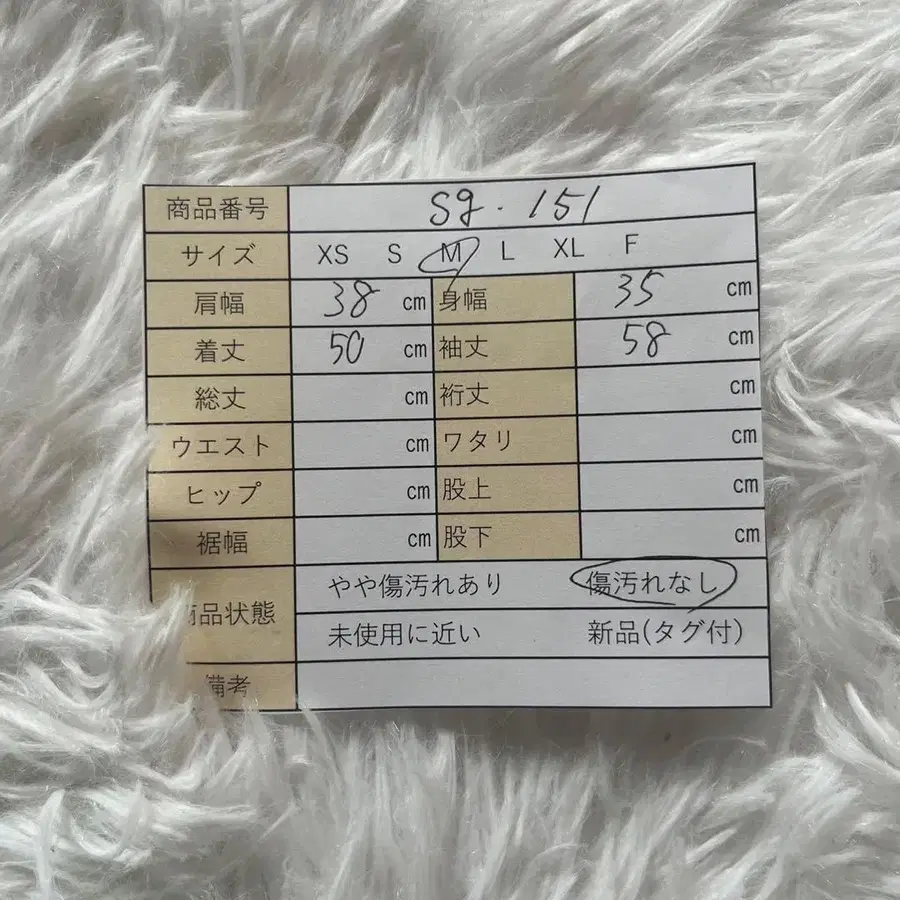 商品番号 sg.151
サイズ XS S M L XL F
肩幅 38 cm 身幅 35 cm
着丈 50 cm 袖丈 58 cm
総丈 cm 裄丈 cm
ウエスト cm ワタリ cm
ヒップ cm 股上 cm
裾幅 cm 股下 cm
商品状態 やや傷汚れあり 傷汚れなし
未使用に近い 新品(タグ付)
備考